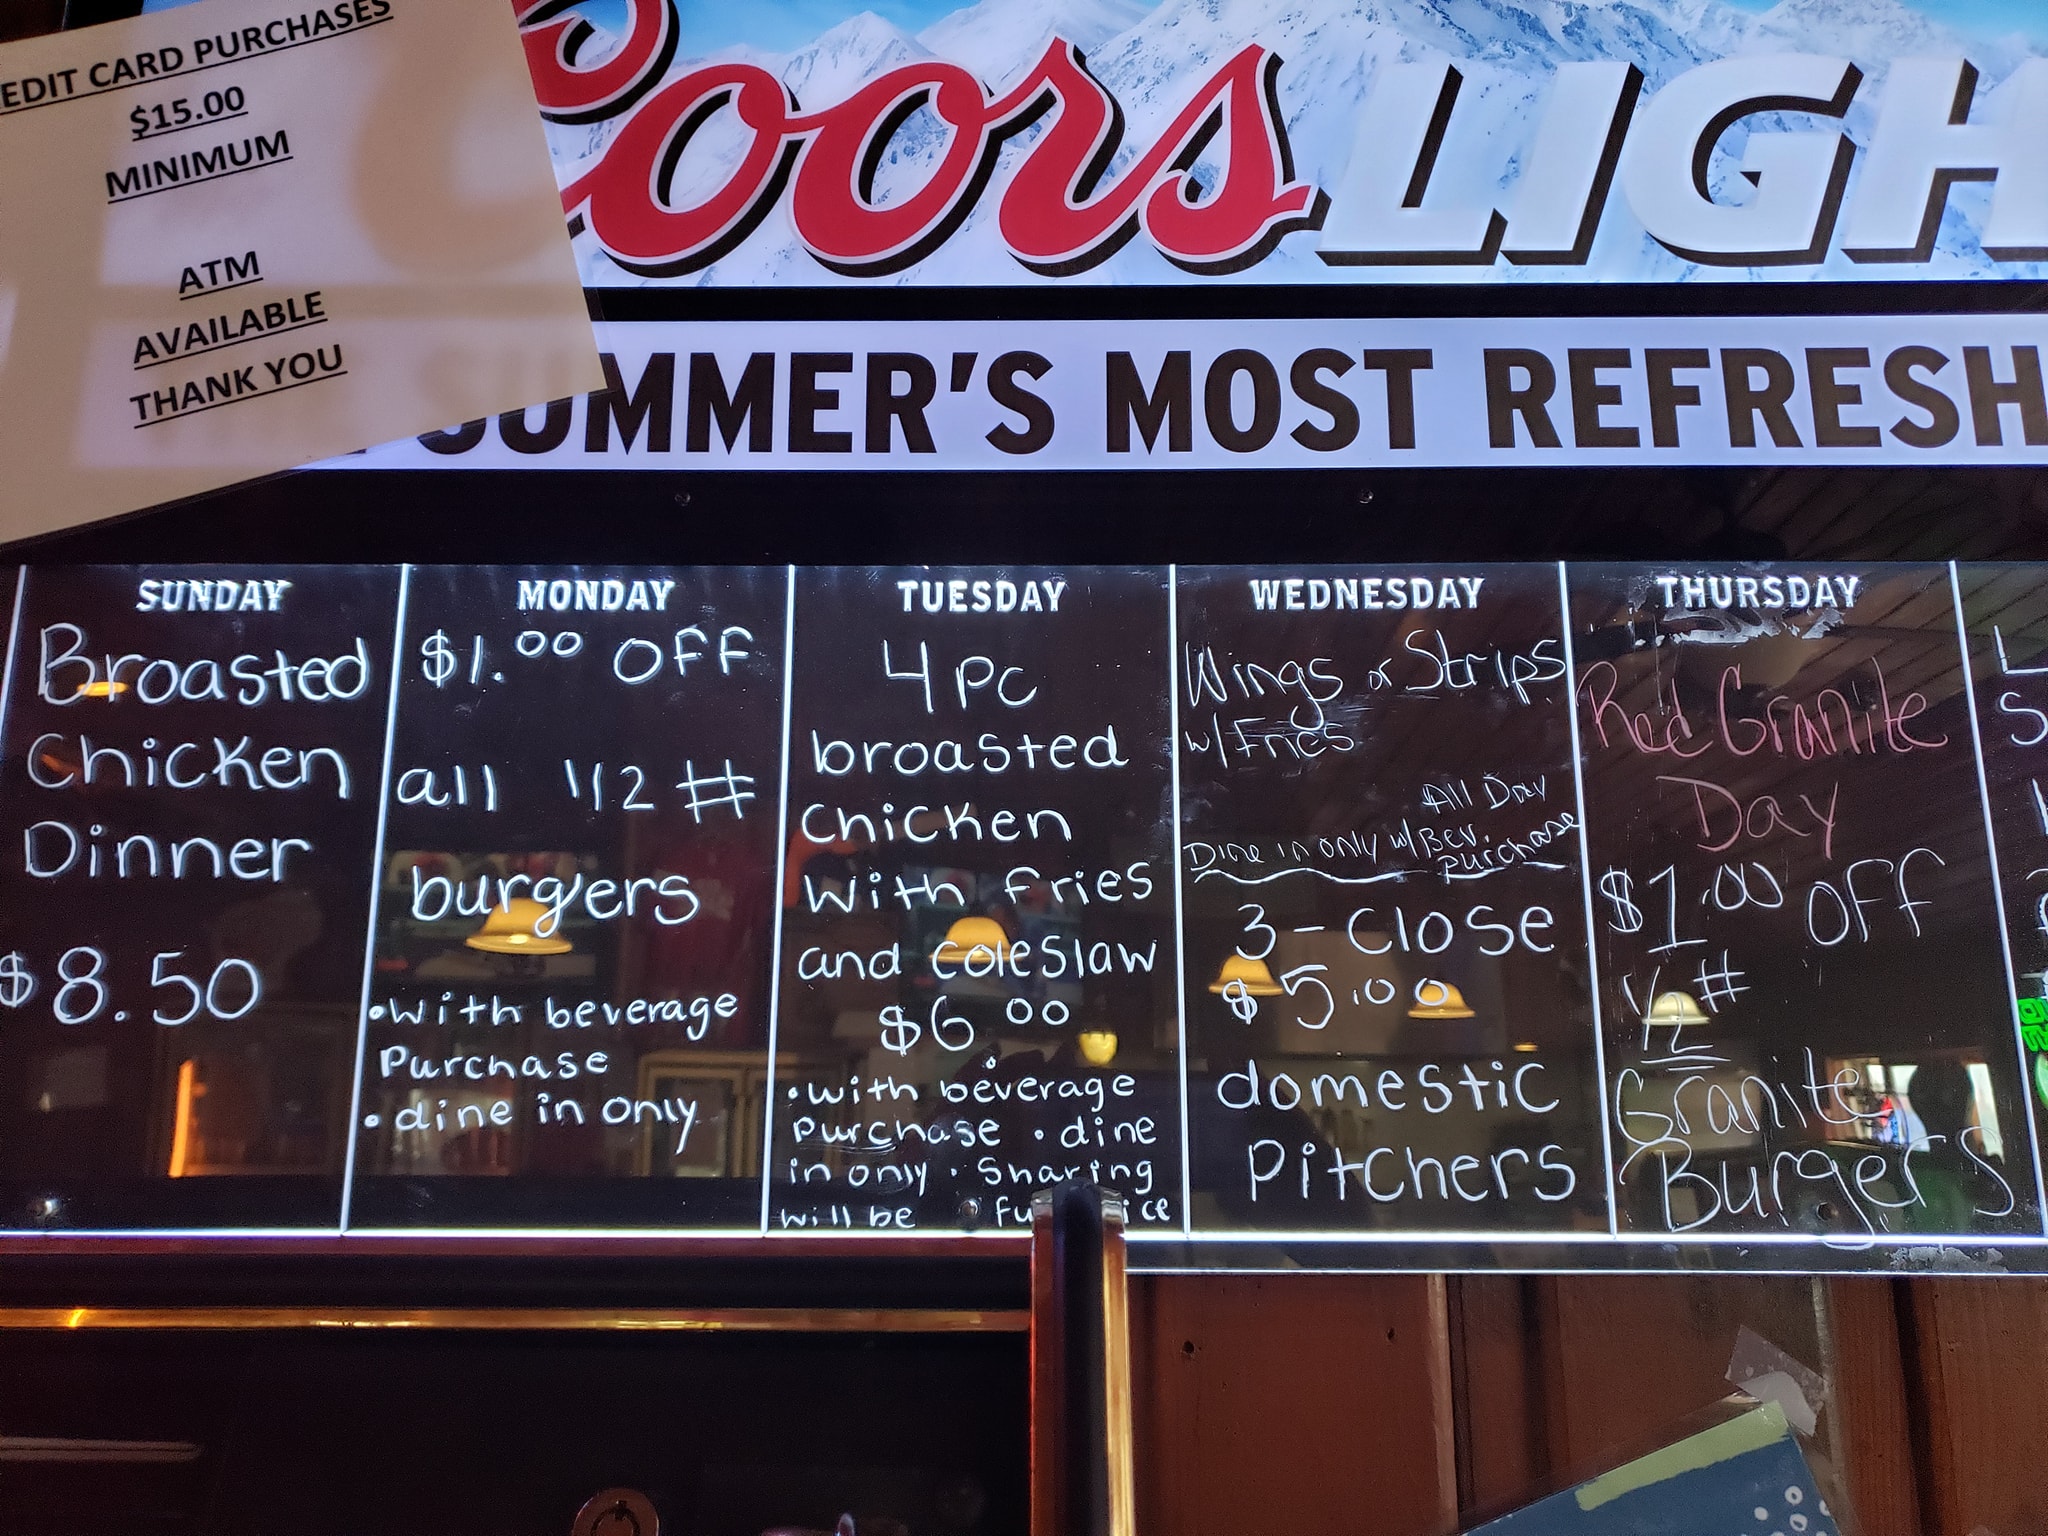 EDIT CARD PURCHASES
$15.00
MINIMUM
ATM
AVAILABLE
THANK YOU
Coors LIGH
SUMMER'S MOST REFRESH
SUNDAY
Broasted
Chicken
Dinner
$8.50
MONDAY
$1.00 OFF
all 1/2 #
burgers
•with beverage
Purchase
•dine in only
TUESDAY
4 pc
broasted
Chicken
with fries
and coleslaw
$6.00
•with beverage
purchase • dine
in only • Sharing
will be
WEDNESDAY
Wings or Strips
w/Fries
All Day
Dine in only w/Bev.
purchase
3 - Close
$5.00
domestic
Pitchers
THURSDAY
Red Granite
Day
$1.00 OFF
1/2 #
Granite
Burgers